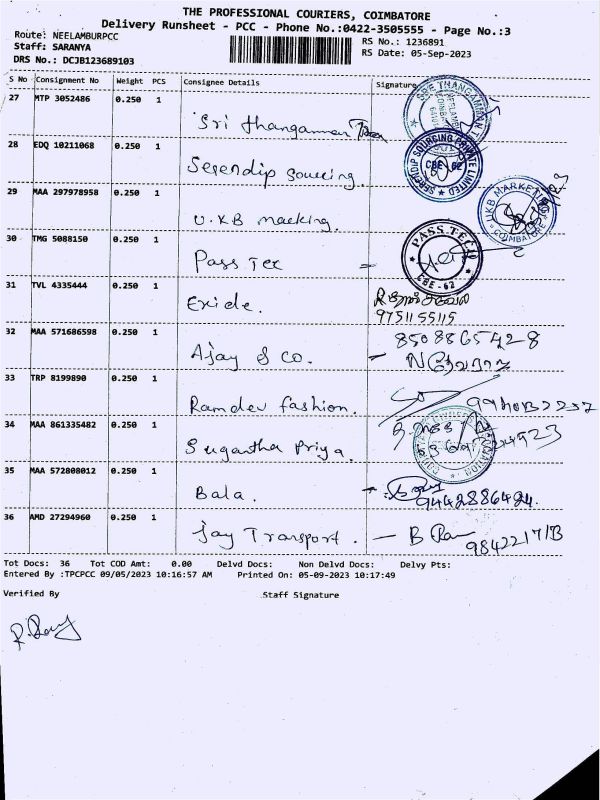 THE PROFESSIONAL COURIERS, COIMBATORE
Delivery Runsheet - PCC - Phone No.:0422-3505555 - Page No.:3
Route: NEELAMBURPCC
Staff: SARANYA
DRS No.: DCJB123689103
RS No.: 1236891
RS Date: 05-Sep-2023
S No Consignment No Weight PCS Consignee Details Signature
27 MTP 3052486 0.250 1
Sri thangamman
SREE THANGAMMAN
28 EDQ 10211068 0.250 1
Serendip sourcing.
SERENDIP SOURCING PRIVATE LIMITED
CBE-62
29 MAA 297978958 0.250 1
U.KB marking.
UKB MARKETING
COIMBATORE
30 TMG 5088150 0.250 1
Pass Tex =
PASS TECH
CBE-62
31 TVL 4335444 0.250 1
Exide.
9751155115
32 MAA 571686598 0.250 1
8508865428
Ajay & co. -
33 TRP 8199890 0.250 1
Ramdev fashion.
34 MAA 861335482 0.250 1
Sugantha Priya.
35 MAA 572808012 0.250 1
Bala.
9442886424.
36 AMD 27294960 0.250 1
Jay Transport. -
Tot Docs: 36 Tot COD Amt: 0.00 Delvd Docs: Non Delvd Docs: Delvy Pts:
Entered By :TPCPCC 09/05/2023 10:16:57 AM Printed On: 05-09-2023 10:17:49
Verified By Staff Signature